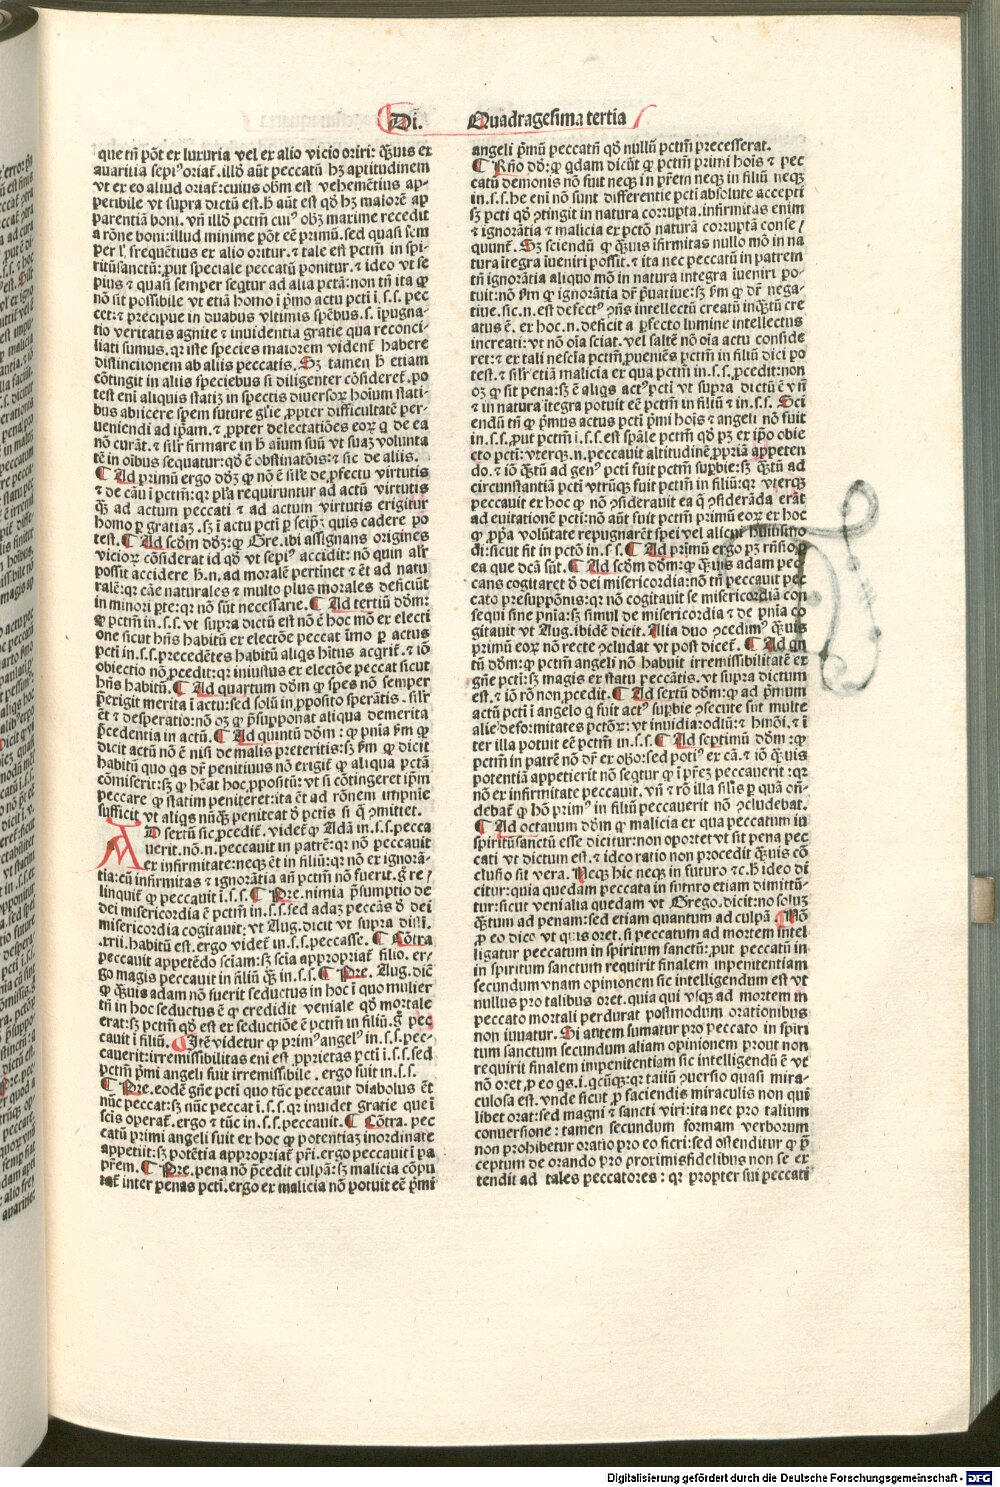 Di. Quadragesima tertia
que tñ põt ex luxuria vel ex alio vicio oriri: q̃uis ex
auaritia sepiꝰ oriat̃. illd̃ aũt peccatũ hʒ aptitudinem
vt ex eo aliud oriat̃: cuius obm̃ est vehemẽtius ap-
petibile vt supra dictũ est. h̃ aũt est qd̃ hʒ maiorẽ ap
parentiã boni. vñ illd̃ pctm̃ cuiꝰ obʒ maxime recedit
a rõne boni: illud minime põt eẽ primũ. sed quasi sem
per ł frequẽtius ex alio oritur. ⁊ tale est pctm̃ in spi-
ritũsanctũ: ꝓut speciale peccatũ ponitur. ⁊ ideo vt se
pius ⁊ quasi semper seqtur ad alia pctã: non tñ ita ꝙ
nõ sit possibile vt etiã homo i p̃mo actu pcti i. s. s. pec
cet: ⁊ precipue in duabus vltimis spẽbus. s. ipugna-
tio veritatis agnite ⁊ inuidentia gratie qua reconci-
liati sumus. qr iste species maiorem vident̃ habere
distinctionem ab aliis peccatis. Sʒ tamen h̃ etiam
cõtingit in aliis speciebus si diligenter cõsideret̃. po
test eni aliquis statiʒ in spectis diuersoꝝ hoĩum stati-
bus abiicere spem future glĩe ꝓpter difficultatẽ per-
ueniendi ad ip̃am. ⁊ ꝓpter delectatiões eoꝝ q̃ de ea
nõ curãt. ⁊ silr̃ firmare in h̃ aĩum suũ vt suaʒ volunta
tẽ in oĩbus sequatur: qd̃ ẽ obstinatõis: ⁊ sic de aliis.
¶ Ad primũ ergo dõʒ ꝙ nõ ẽ silẽ de ꝓfectu virtutis
⁊ de cãu i pctm̃: qr pl̃ra requiruntur ad actũ virtutis
q̃ʒ ad actum peccati ⁊ ad actum virtutis erigitur
homo per gratiaʒ. sʒ i actu pcti ꝑ seip̃ʒ quis cadere po
test. ¶ Ad scdm̃ dõʒ: ꝙ Gre. ibi assignans origines
vicioꝝ cõsiderat id qd̃ vt sepiꝰ accidit: nõ quin alr̃
possit accidere h̃. n. ad moralẽ pertinet ⁊ ẽt ad natu
ralẽ: qr cãe naturales ⁊ multo plus morales deficiũt
in minori pte: qr nõ sũt necessarie. ¶ Ad tertiũ dõm̃:
ꝙ pctm̃ in. s. s. vt supra dictũ est nõ ẽ hoc mõ ex electi
one sicut hñs habitũ ex electõe peccat ĩmo ꝑ actus
pcti in. s. s. precedẽtes habitũ aliqs hĩtus acgrit̃. ⁊ iõ
obiectio nõ ꝓcedit: qr iniustus ex electõe peccat sicut
hñs habitũ. ¶ Ad quartum dõm̃ ꝙ spes nõ semper
p̃exigit merita i actu: sed solũ in ꝓposito sperãtis. silr̃
ẽt ⁊ desperatio: nõ oʒ ꝙ p̃supponat aliqua demerita
p̃cedentia in actũ. ¶ Ad quintũ dõm̃: ꝙ pñia s̃m ꝙ
dicit actũ nõ ẽ nisi de malis preteritis: sʒ s̃m ꝙ dicit
habitũ quo qs dr̃ penitiuus nõ exigit̃ ꝙ aliqua pctã
cõmiserit: sʒ ꝙ hẽat hoc ꝓpositũ: vt si cõtingeret ip̃m
peccare ꝙ statim peniteret: ita ẽt ad rõnem impñie
sufficit vt aliqs nũq̃ʒ peniteat d̃ pctis si q̃ ꝯmittet.
AD sextũ sic ꝓcedit̃. videt̃ ꝙ Adã in. s. s. pecca
uerit. nõ. n. peccauit in patrẽ: qr nõ peccauit
ex infirmitate: neqʒ ẽt in filiũ: qr nõ ex ignorã-
tia: cũ infirmitas ⁊ ignorãtia añ pctm̃ nõ fuerit. g̃ re/
linquit̃ ꝙ peccauit i. s. s. ¶ Pre. nimia p̃sumptio de
dei misericordia ẽ pctm̃ in. s. s. sed adaʒ peccãs d̃ dei
misericordia cogitauit: vt Aug. dicit vt supra disti.
.xxii. habitũ est. ergo videt̃ in. s. s. peccasse. ¶ Cõtra
peccauit appetẽdo sciam: sʒ scia appropriat̃ filio. er-
go magis peccauit in filiũ q̃ʒ in. s. s. ¶ Pre. Aug. diẽ
ꝙ q̃uis adam nõ fuerit seductus in hoc i quo mulier
tñ in hoc seductus ẽ ꝙ credidit veniale qd̃ mortale
erat: sʒ pctm̃ qd̃ est ex seductiõe ẽ pctm̃ in filiũ. g̃ pec
cauit i filiũ. ¶ Itẽ videtur ꝙ primꝰ angelꝰ in. s. s. pec-
cauerit: irremissibilitas eni est ꝓprietas pcti i. s. s. sed
pctm̃ primi angeli fuit irremissibile. ergo fuit in. s. s.
¶ Pre. eodẽ gñe pcti quo tũc peccauit diabolus ẽt
nũc peccat: sʒ nũc peccat i. s. s. qr inuidet gratie que i
scis operat̃. ergo ⁊ tũc in. s. s. peccauit. ¶ Cõtra. pec
catũ primi angeli fuit ex hoc ꝙ potentiaʒ inordinate
appetiit: sʒ potẽtia appropriat̃ pr̃i. ergo peccauit i pa
p̃rem. ¶ Pre. pena nõ p̃cedit culpã: sʒ malicia cõpu
tat̃ inter penas pcti. ergo ex malicia nõ potuit eẽ p̃mi
angeli p̃mũ peccatũ qd̃ nullũ pctm̃ precesserat.
¶ Rño dõ: ꝙ qdam dicũt ꝙ pctm̃ primi hoĩs ⁊ pec
catũ demonis nõ fuit neqʒ i p̃rẽm neqʒ in filiũ neqʒ
in. s. s. he eni nõ sunt differentie pcti absolute accepti
sʒ pcti qd̃ ꝯtingit in natura corrupta. infirmitas enim
⁊ ignorãtia ⁊ malicia ex pctõ naturã corruptã conse/
quunt̃. Sʒ sciendũ ꝙ q̃uis ĩfirmitas nullo mõ in na
tura ĩtegra ĩueniri possit. ⁊ ita nec peccatũ in patrem
tñ ignorãtia aliquo mõ in natura integra ĩueniri po-
tuit: nõ s̃m ꝙ ignorãtia dr̃ p̃uatiue: sʒ s̃m ꝙ dr̃ nega-
tiue. sic. n. est defectꝰ ꝯñs intellectũ creatũ inq̃ʒtũ cre
atus ẽ. ex hoc. n. deficit a ꝑfecto lumine intellectus
increati: vt nõ oĩa sciat. vel saltẽ nõ oĩa actu conside
ret: ⁊ ex tali nescĩa pctm̃ ꝓueniẽs ꝑctm̃ in filiũ dici po
test. ⁊ silr̃ etiã malicia ex qua pctm̃ in. s. s. ꝓcedit: non
oʒ ꝙ sit pena: sʒ ẽ aliqs actꝰ pcti vt supra dictũ ẽ vñ
⁊ in natura ĩtegra potuit eẽ pctm̃ in filiũ ⁊ in. s. s. Sci
endũ tñ ꝙ p̃mus actus pcti p̃mi hoĩs ⁊ angeli nõ fuit
in. s. s. ꝓut pctm̃ i. s. s. est sp̃ale pctm̃ qd̃ pʒ ex ip̃o obie
cto pcti: vterqʒ. n. peccauit altitudinẽ ꝓpriã appeten
do. ⁊ iõ q̃ʒtũ ad genꝰ pcti fuit pctm̃ supbie: sʒ q̃ʒtũ ad
circunstantiã pcti vtrũqʒ fuit pctm̃ in filiũ: qr vterqʒ
peccauit ex hoc ꝙ nõ ꝯsiderauit ea q̃ ꝯsiderãda erãt
ad euitationẽ pcti: nõ aũt fuit pctm̃ primũ eoꝝ ex hoc
ꝙ ꝓpa volũtate repugnarẽt spei vel alicui huiusmo
di: sicut fit in pctõ in. s. s. ¶ Ad primũ ergo pʒ rñsio ꝑ
ea que dcã sũt. ¶ Ad scdm̃ dõm̃: ꝙ q̃uis adam pec
cans cogitaret d̃ dei misericordia: nõ tñ peccauit pec
cato presuppõnis: qr nõ cogitauit se misericordiã con
sequi sine pñia: sʒ simul de misericordia ⁊ de pñia co
gitauit vt Aug. ibidẽ dicit. Alia duo ꝯcedimꝰ q̃uis
primũ eoꝝ nõ recte ꝯcludat vt post dicet̃. ¶ Ad qn
tũ dõm̃: ꝙ pctm̃ angeli nõ habuit irremissibilitatẽ ex
gñe pcti: sʒ magis ex statu peccãtis. vt supra dictum
est. ⁊ iõ rõ non ꝓcedit. ¶ Ad sextũ dõm̃: ꝙ ad p̃mum
actũ pcti i angelo q̃ fuit actꝰ supbie ꝯsecute sũt multe
alie deformitates pctõꝝ: vt inuidia: odiũ: ⁊ hmõi. ⁊ i
ter illa potuit eẽ pctm̃ in. s. s. ¶ Ad septimũ dõm̃: ꝙ
pctm̃ in patrẽ nõ dr̃ ex obo: sed potiꝰ ex cã. ⁊ iõ q̃uis
potentiã appetierit nõ seqtur ꝙ i p̃reʒ peccauerit: qr
nõ ex infirmitate peccauit. vñ ⁊ rõ illa silis ꝑ quã oñ-
debat̃ ꝙ hõ primꝰ in filiũ peccauerit nõ ꝯcludebat.
¶ Ad octauum dõm̃ ꝙ malicia ex qua peccatum in
spiritũsanctũ esse dicitur: non oportet vt sit pena pec
cati vt dictum est. ⁊ ideo ratio non procedit q̃uis cõ
clusio sit vera. Neqʒ hic neqʒ in futuro ⁊c. h̃ ideo di
citur: quia quedam peccata in futuro etiam dimittũ-
tur: sicut venialia quedam vt Grego. dicit: no soluʒ
q̃ʒtum ad penam: sed etiam quantum ad culpã. Nõ
ꝓ eo dico vt quis oret. si peccatum ad mortem intel
ligatur peccatum in spiritum sanctũ: ꝓut peccatũ in
in spiritum sanctum requirit finalem inpenitentiam
secundum vnam opinionem sic intelligendum est vt
nullus pro talibus oret. quia qui vsqʒ ad mortem in
peccato mortali perdurat postmodum orationibus
non iuuatur. Si autem sumatur pro peccato in spiri
tum sanctum secundum aliam opinionem prout non
requirit finalem impenitentiam sic intelligendũ ẽ vt
nõ oret ꝓ eo qs. i. qcũqʒ: qr taliũ ꝯuersio quasi mira-
culosa est. vnde sicut ꝓ faciendis miraculis non qui
libet orat: sed magni ⁊ sancti viri: ita nec pro talium
conuersione: tamen secundum formam verborum
non prohibetur oratio pro eo fieri: sed ostenditur ꝙ p̃
ceptum de orando pro proximis fidelibus non se ex
tendit ad tales peccatores: qr propter sui peccati
Digitalisierung gefördert durch die Deutsche Forschungsgemeinschaft - DFG